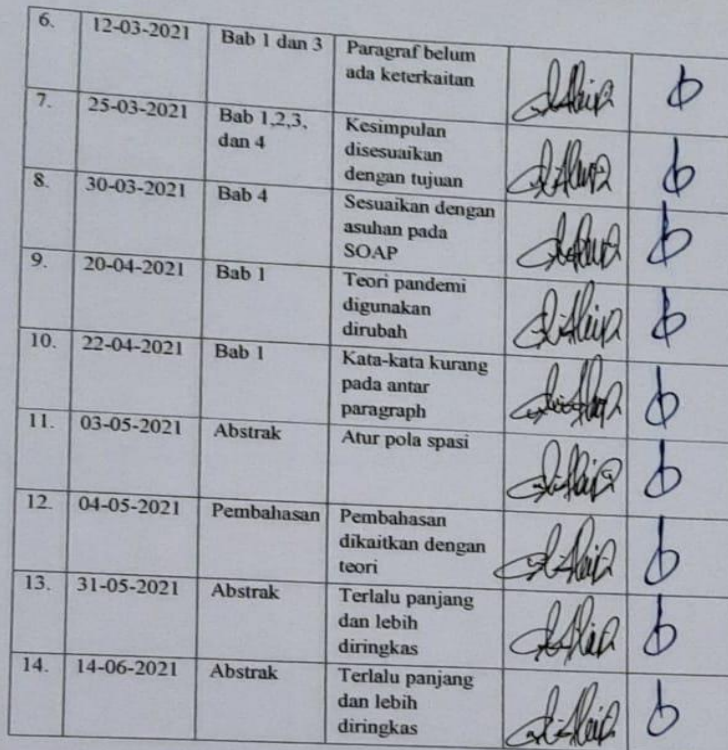 6. 12-03-2021 Bab 1 dan 3 Paragraf belum
ada keterkaitan
7. 25-03-2021 Bab 1,2,3, Kesimpulan
dan 4 disesuaikan
dengan tujuan
8. 30-03-2021 Bab 4 Sesuaikan dengan
asuhan pada
SOAP
9. 20-04-2021 Bab 1 Teori pandemi
digunakan
dirubah
10. 22-04-2021 Bab 1 Kata-kata kurang
pada antar
paragraph
11. 03-05-2021 Abstrak Atur pola spasi
12. 04-05-2021 Pembahasan Pembahasan
dikaitkan dengan
teori
13. 31-05-2021 Abstrak Terlalu panjang
dan lebih
diringkas
14. 14-06-2021 Abstrak Terlalu panjang
dan lebih
diringkas